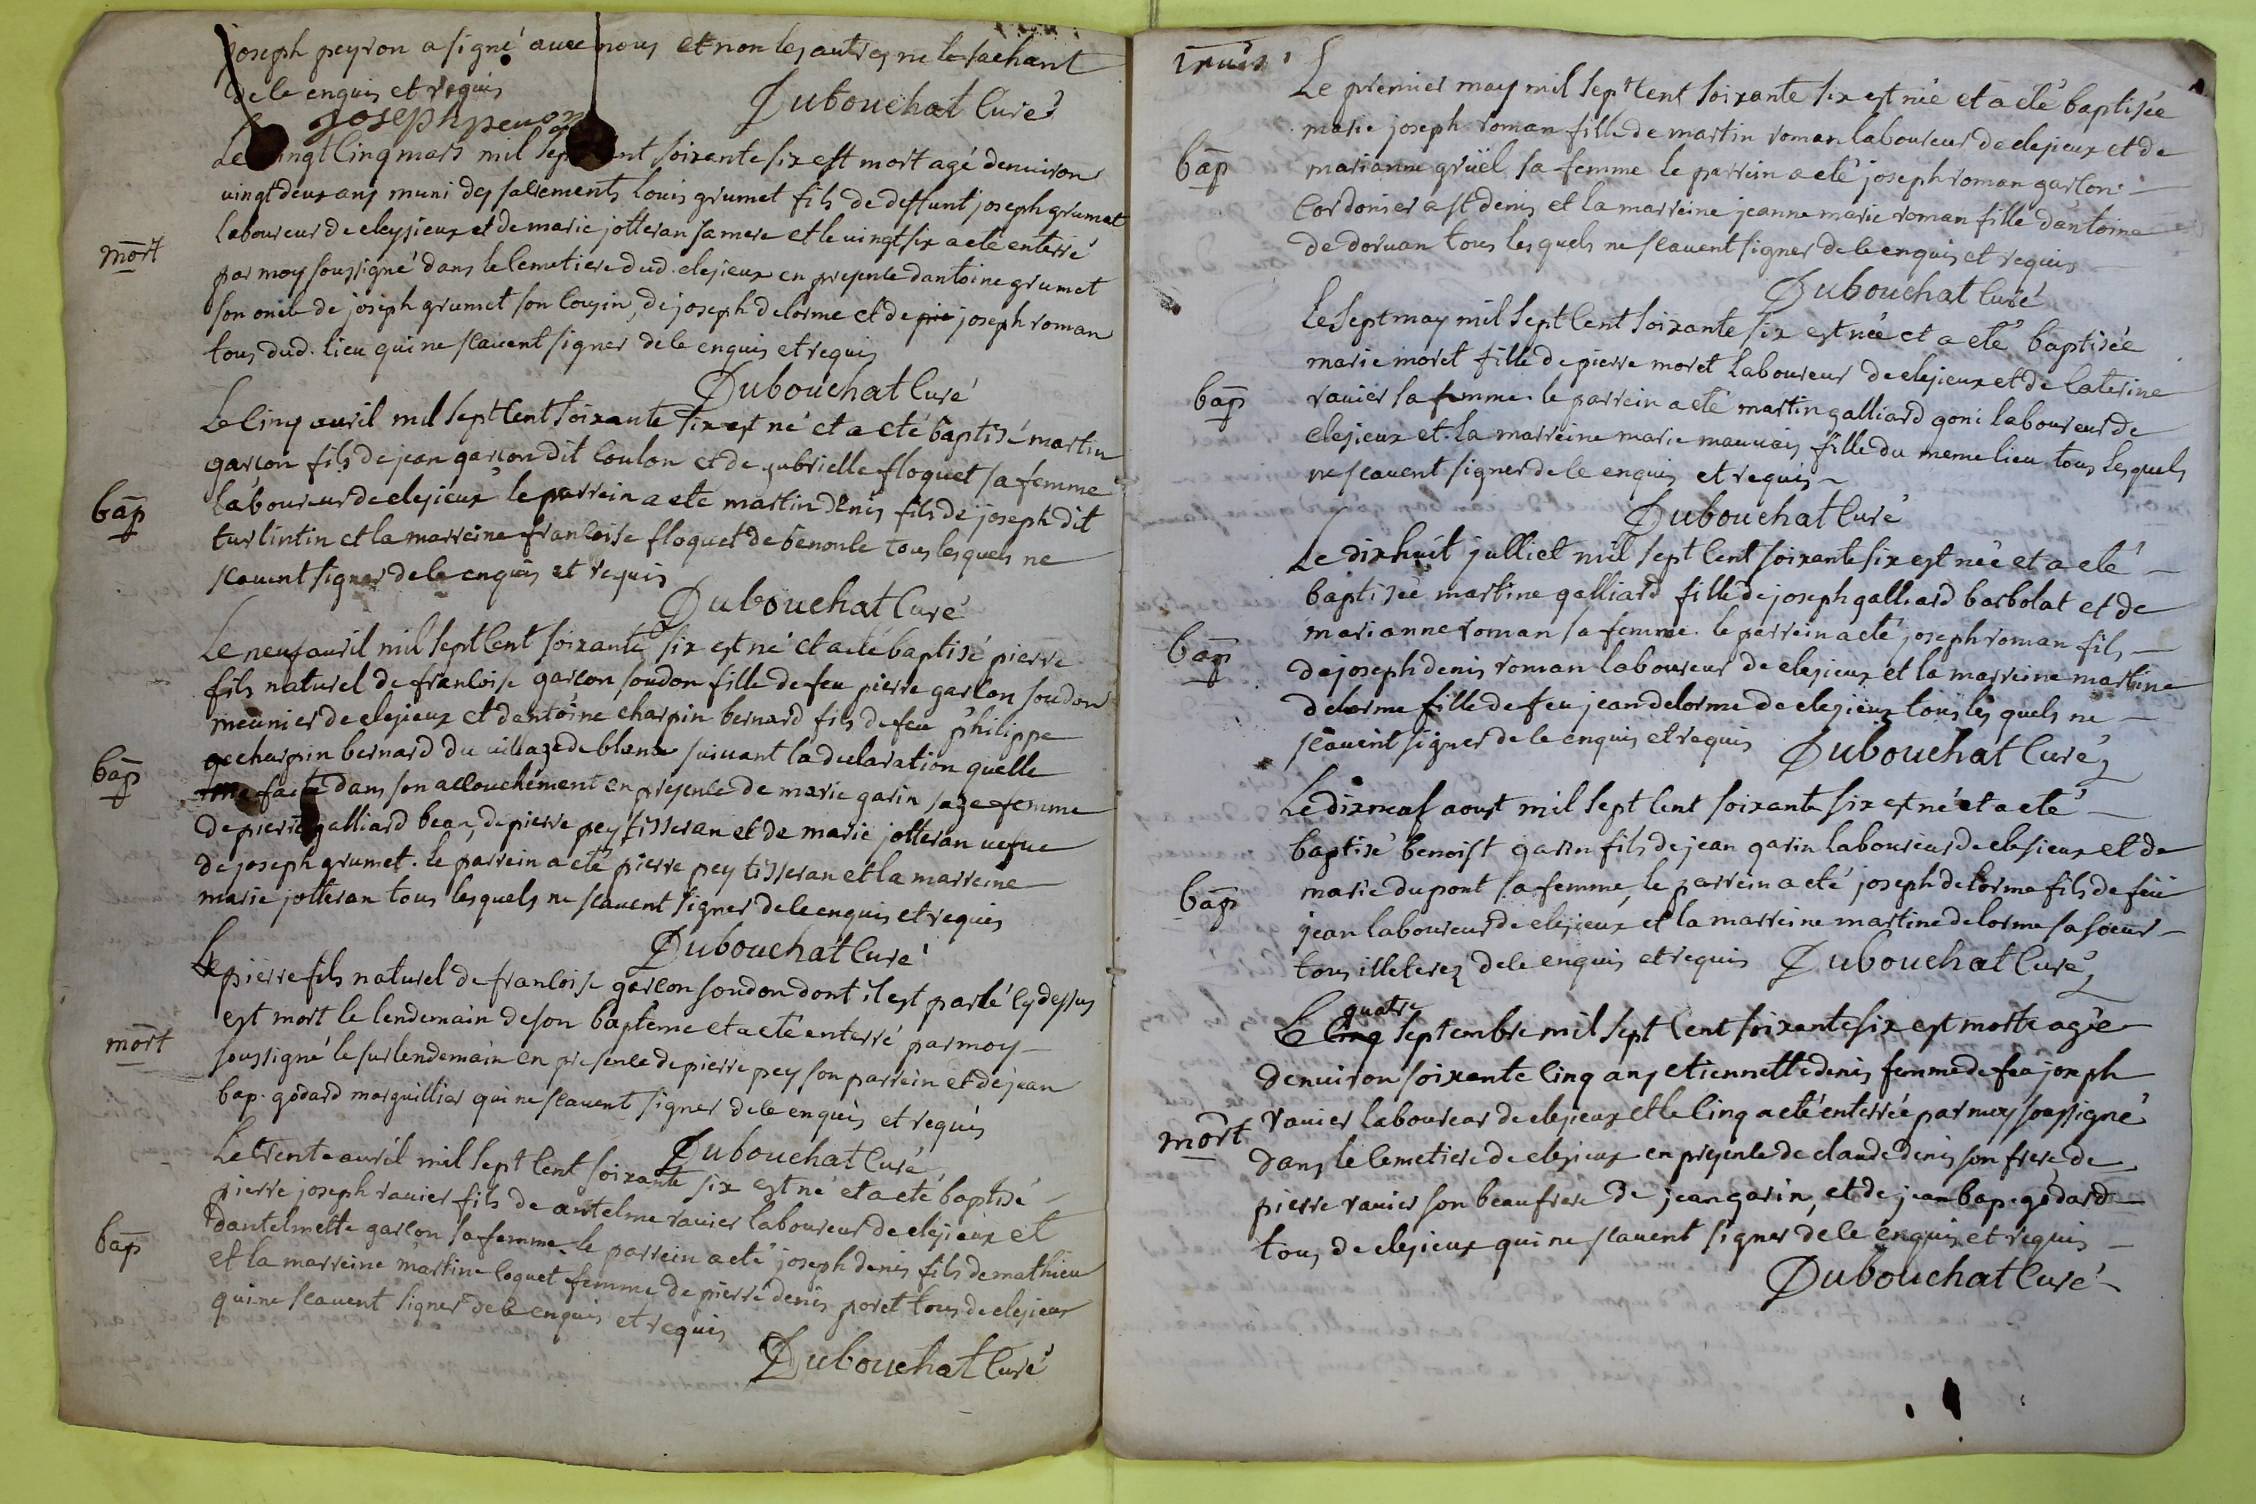 joseph peyron a signé avec nous et non les autres ne le sachant
de le enquis et requis
Dubouchat Curé
joseph peyron
Le vingt cinq mars mil sept cent soixante six est mort agé denuiron
vingt deux ans muni des sacrements louis grumet fils de deffunt joseph grumet
mort
laboureur de cleyzieux et de marie jotteran sa mere et le vingt six a eté enterré
par moy soussigné dans le Cemetiere dud. clezieux en presence dantoine grumet
son oncle de joseph grumet son cousin, de joseph delorme et de joseph roman
tous dud. lieu qui ne scauent signer de le enquis et requis
Dubouchat Curé
Le Cinq auril mil sept Cent soixante six est né et a eté baptisé martin
garcon fils de jean garcon dit Coulon et de gabrielle floquet sa femme
bap
laboureur de clezieux le parrein a eté martin denis fils de joseph dit
turlintin et la marreine francoise floquet de benonce tous lesquels ne
scauent signer de le enquis et requis
Dubouchat Curé
Le neuf auril mil sept Cent soixante six est né et a eté baptisé pierre
fils naturel de francoise garcon soudon fille de feu pierre garcon soudon
meunier de clezieux et dantoine charpin bernard fils de feu philippe
bap
charpin bernard du uillage de suiuant la declaration quelle
faite dans son accouchement en presence de marie garin sage femme
de pierre galliard bear, de pierre pey tisseran et de marie jotteran uefue
de joseph grumet. le parrein a eté pierre pey tisseran et la marreine
marie jotteran tous lesquels ne scauent signer de le enquis et requis
Dubouchat Curé
Le pierre fils naturel de francoise garcon soudon dont il est parlé cy dessus
est mort le lendemain de son bapteme et a eté enterré par moy
mort
soussigné le surlendemain en presence de pierre pey son parrein et de jean
bap. godard marguillier qui ne scauent signer de le enquis et requis
Dubouchat Curé
Le trente auril mil sept Cent soixante six est né et a eté baptisé
pierre joseph rauier fils de antelme rauier laboureur de clezieux et
dantelmette garcon sa femme. le parrein a eté joseph denis fils de mathieu
bap
et la marreine martine coquet femme de pierre denis poret tous de clezieux
qui ne scauent signer de le enquis et requis
Dubouchat Curé
Le premier may mil sept Cent soixante six est née et a eté baptisée
marie joseph roman fille de martin roman laboureur de clezieux et de
bap
marianne gruel sa femme le parrein a eté joseph roman garcon
Cordonier a st denis et la marreine jeanne marie roman fille dantoine
de doruan tous lesquels ne scauent signer de le enquis et requis
Dubouchat Curé
Le sept may mil sept Cent soixante six est née et a eté baptisée
marie moret fille de pierre moret laboureur de clezieux et de Caterine
bap
rauier sa femme. le parrein a eté martin galliard goni laboureur de
clezieux et la marreine marie mauuais fille du meme lieu tous lesquels
ne scauent signer de le enquis et requis
Dubouchat Curé
Le dixhuit julliet mil sept Cent soixante six est née et a eté
baptisée martine galliard fille de joseph galliard barbolat et de
bap
marianne roman sa femme. le parrein a eté joseph roman fils
de joseph denis roman laboureur de clezieux et la marreine martine
delorme fille de feu jean delorme de clezieux tous lesquels ne
scauent signer de le enquis et requis Dubouchat Curé
Le dixneuf aoust mil sept Cent soixante six est né et a eté
baptisé benoist garin fils de jean garin laboureur de clezieux et de
bap
marie dupont sa femme, le parrein a eté joseph delorme fils de feu
jean laboureur de clezieux et la marreine martine delorme sa soeur
tous illeterez de le enquis et requis Dubouchat Curé
quatre
Le Cinq septembre mil sept Cent soixante six est morte agée
denuiron soixante Cinq ans etiennette denis femme de feu joseph
mort
rauier laboureur de clezieux et le Cinq a eté enterrée par moy soussigné
dans le Cemetiere de clezieux en presence de claude denis son frere de
pierre rauier son beaufrere de jean garin, et de jean bap. godard
tous de clezieux qui ne scauent signer de le enquis et requis
Dubouchat Curé